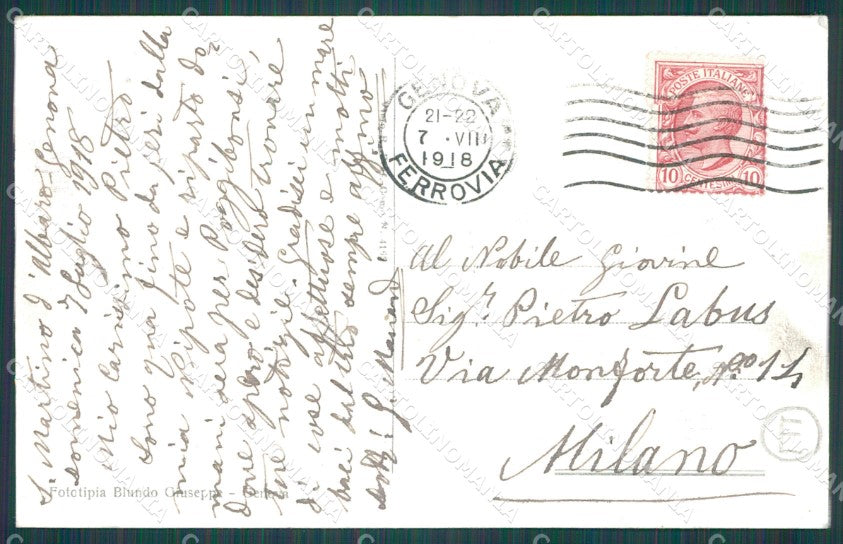 S. Martino d'Albaro - Genova
domenica 7 Luglio 1918
Mio carissimo Pietro
sono qua fino da ieri dalla
mia Nipote e riparto do=
mani sera per Poggibonsi
dove spero e desidero trovare
tue notizie. Gradisci un mare
di cose affettuose e molti
baci dal tuo sempre affmo
G.
Fototipia Blundo Giuseppe - Genova
GENOVA
21-22
7 · VII
1918
FERROVIA
POSTE ITALIANE
10 CENTESIMI 10
Al Nobile Giovine
Sigr. Pietro Labus
Via Monforte, No. 14
Milano
CARTOLINOMANIA